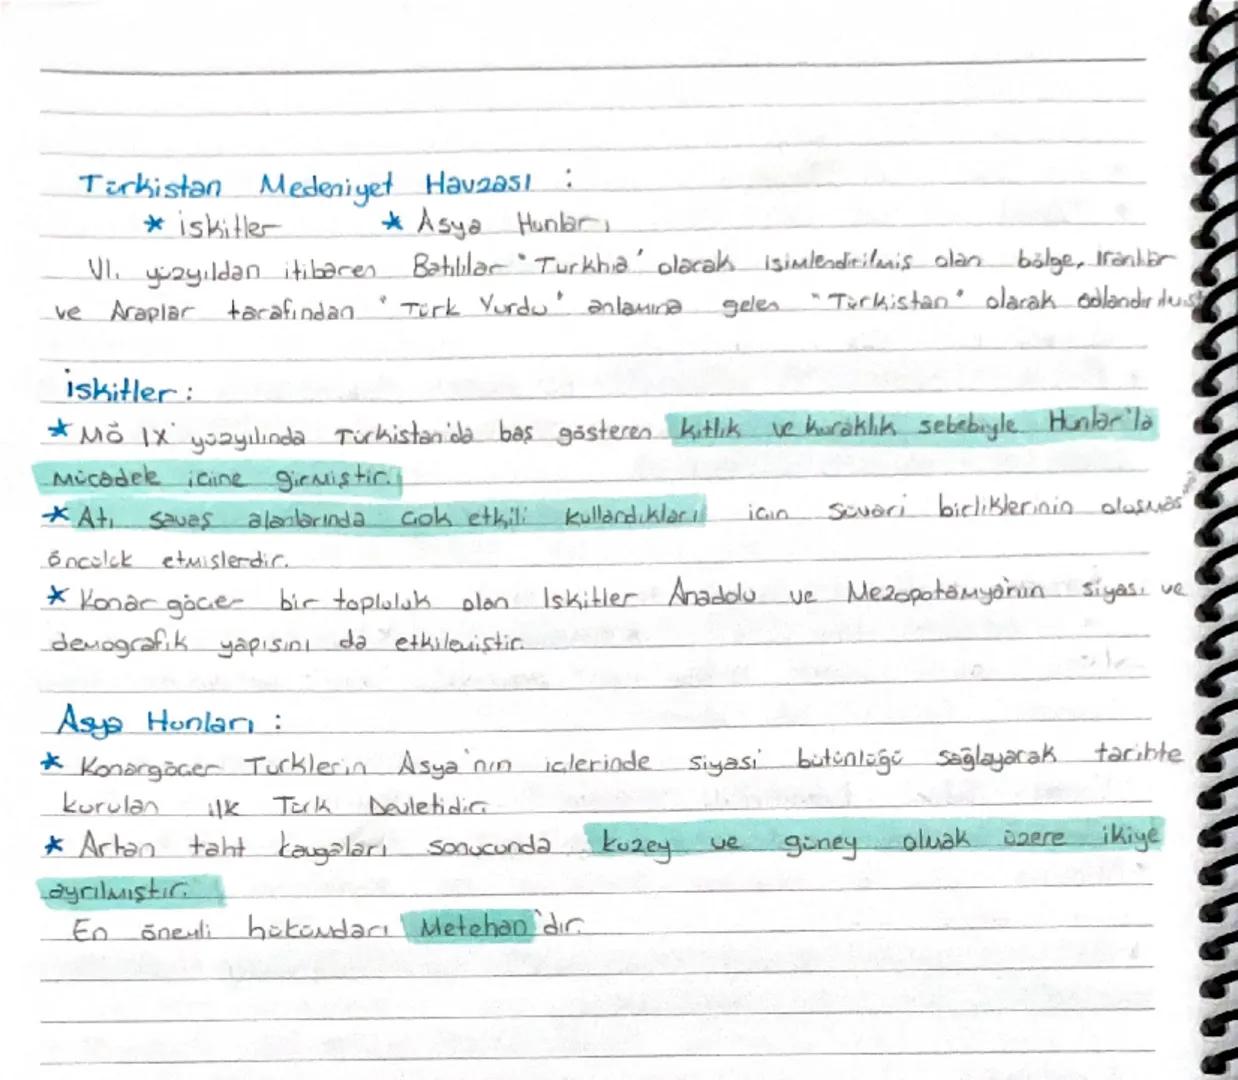 Türkistan Medeniyet Havzası :
* iskitler * Asya Hunları
VI. yüzyıldan itibaren Batılılar "Turkhia" olarak isimlendirilmis olan bölge, iranlılar
ve Araplar tarafından "Türk Yurdu" anlamına gelen "Türkistan" olarak
iskitler :
* MÖ IX yüzyılında Türkistan'da baş gösteren kıtlık ve kuraklık sebebiyle Hunlar'la
mücadele içine girmiştir.
* Atı savaş alanlarında çok etkili kullandıkları için süvari birliklerinin oluşması
öncülük etmislerdir.
* Konar göcer bir topluluk olan Iskitler Anadolu ve Mezopotamya'nın siyası ve
demografik yapısını da etkilemiştir.
Asya Hunları :
* Konargöcer Turklerin Asya'nın iclerinde siyasi bütünlüğü sağlayarak tarihte
kurulan ilk Türk Devletidir.
* Artan taht kavgaları sonucunda kuzey ve güney olmak üzere ikiye
ayrılmıştır.
En önemli hükümdarı Metehan'dır.